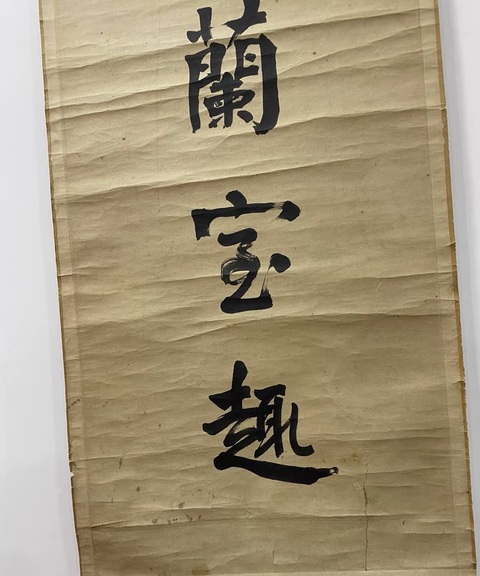 蘭
室
趣